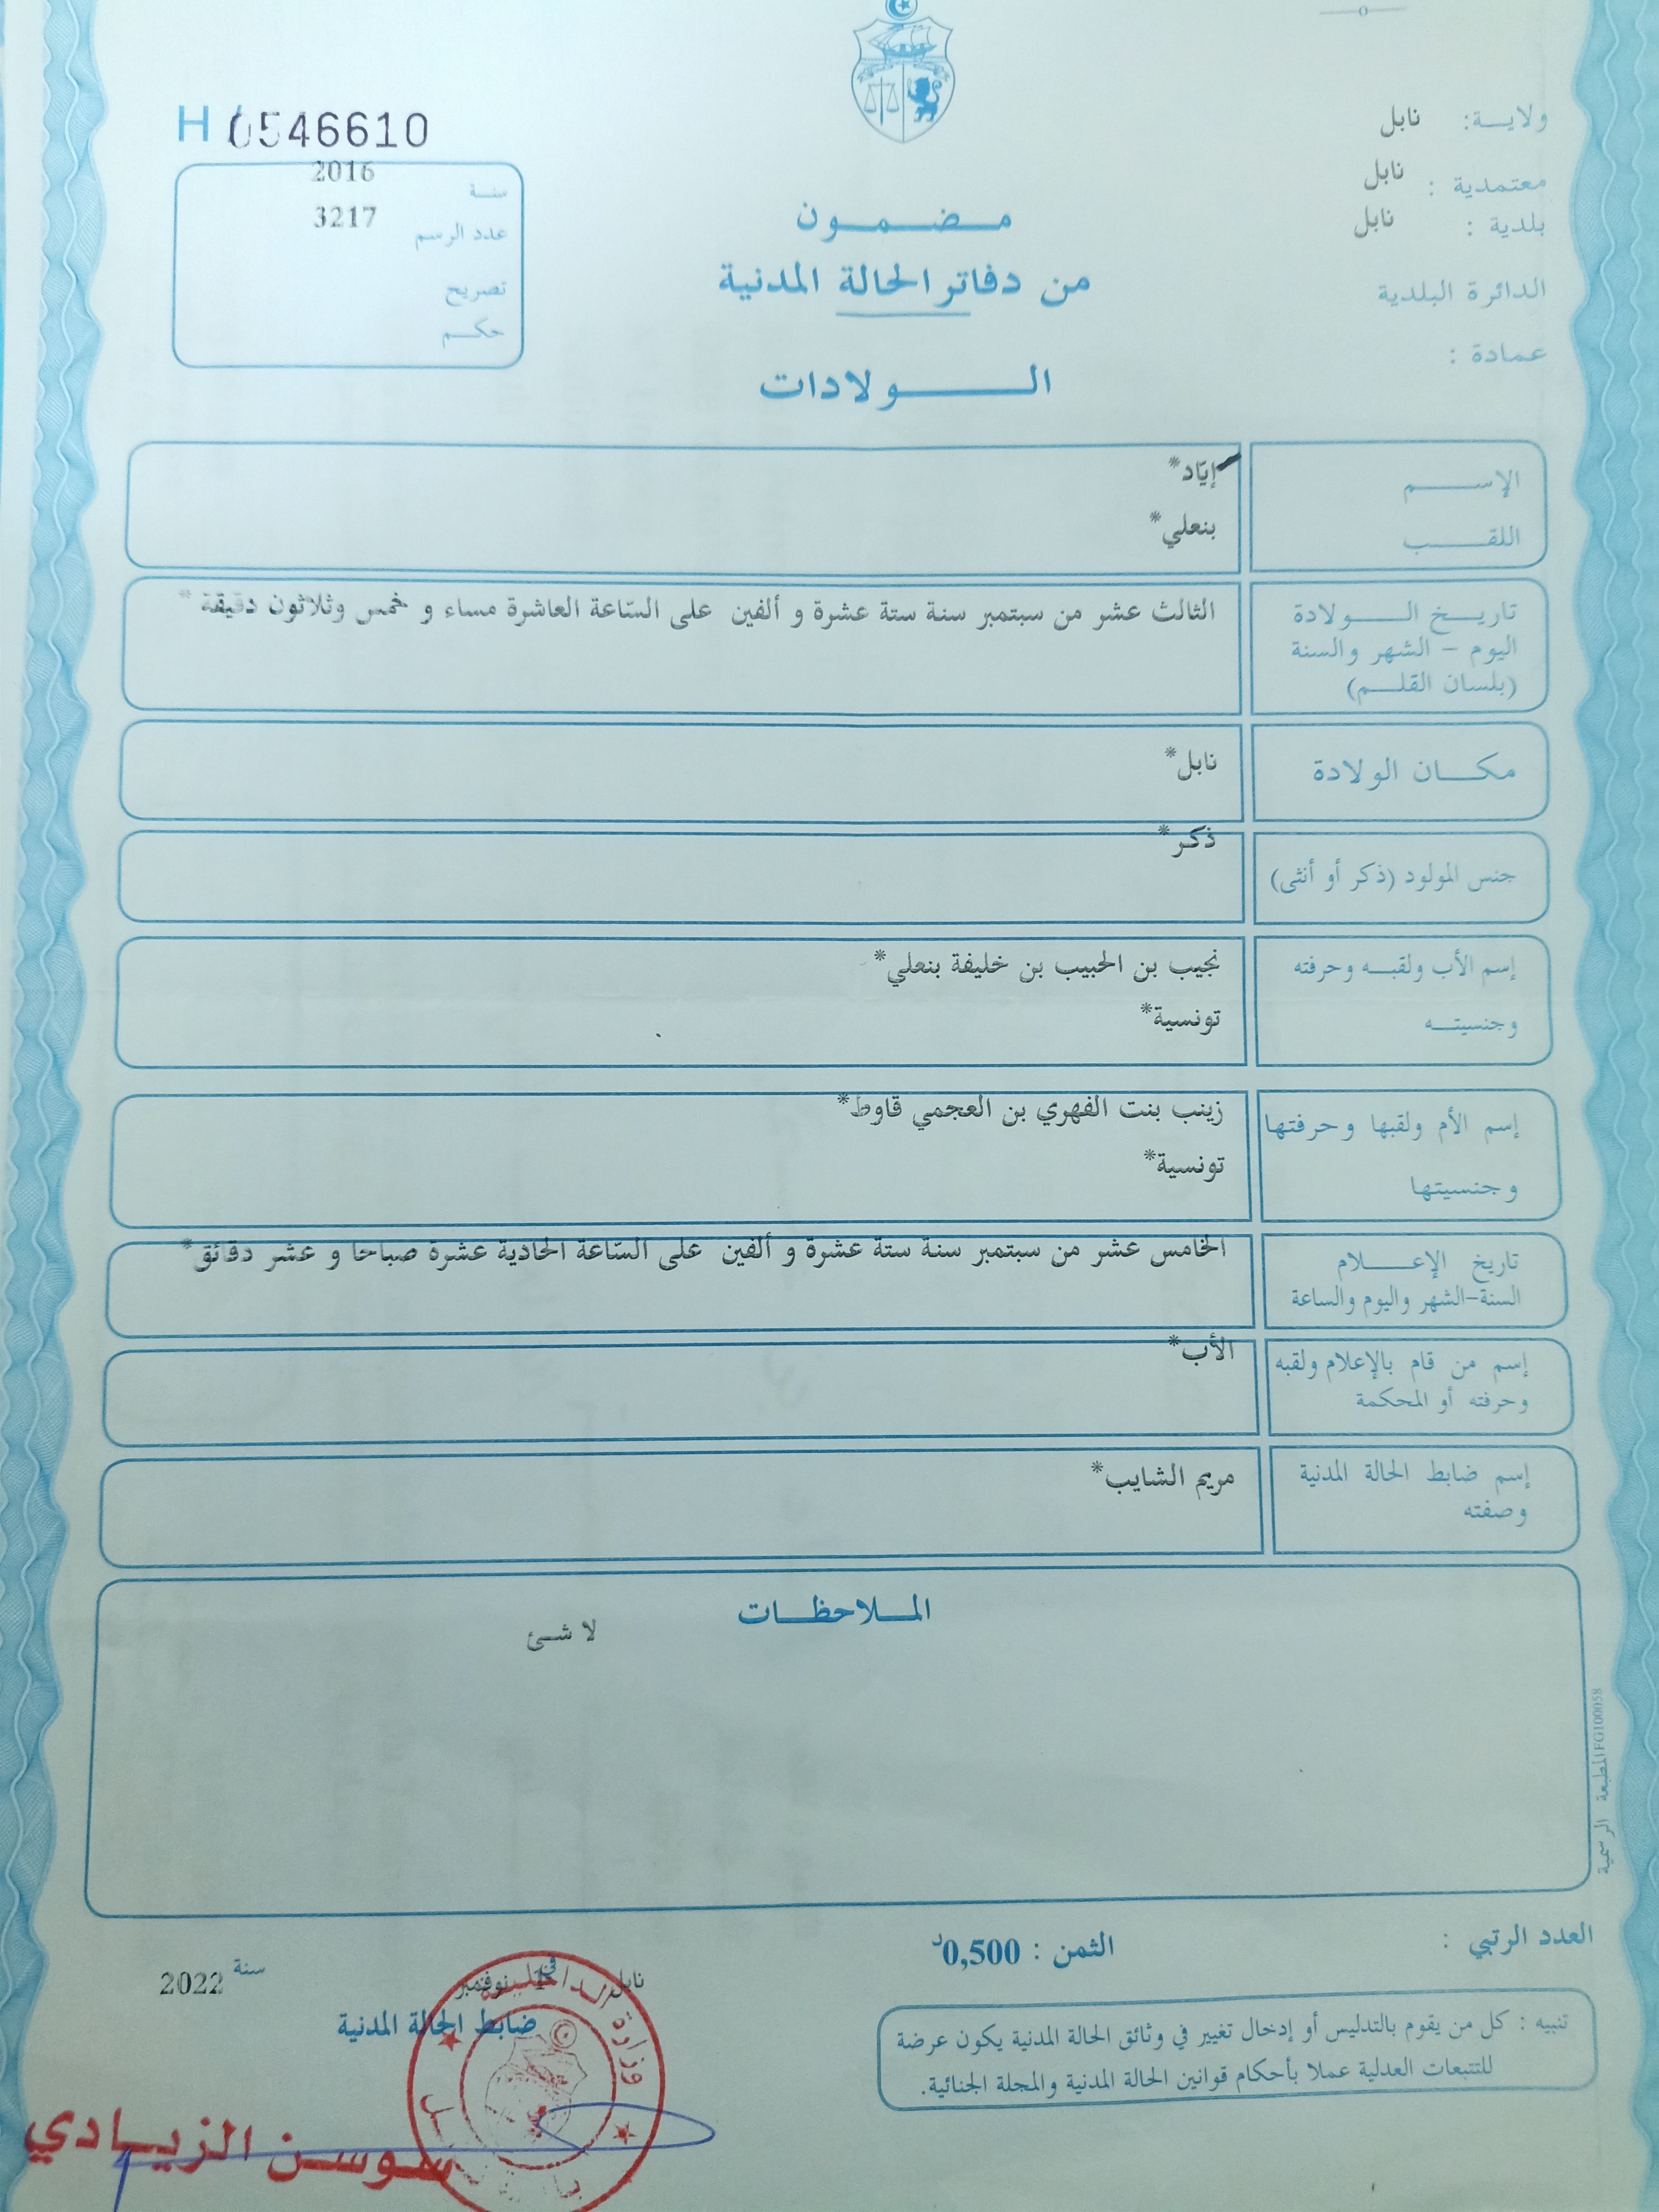 H 0546610
ولايـــة: نابل
معتمدية : نابل
بلدية : نابل
الدائرة البلدية
عمادة :
سنـة 2016
عدد الرسم 3217
تصريح
حكـــم
مـــضـــمـــون
من دفاتر الحالة المدنية
الـــــولادات
الإســـــــم إيّاد*
اللقـــــــب بنعلي*
تاريـــخ الـــــولادة الثالث عشر من سبتمبر سنة ستة عشرة و ألفين على السّاعة العاشرة مساء و خمس وثلاثون دقيقة *
اليوم – الشهر والسنة
(بلسان القلـــم)
مكـــان الولادة نابل*
جنس المولود (ذكر أو أنثى) ذكر*
إسم الأب ولقبـــه وحرفته نجيب بن الحبيب بن خليفة بنعلي*
وجنسيتـــه تونسية*
إسم الأم ولقبها وحرفتها زينب بنت الفهري بن العجمي قاوط*
وجنسيتها تونسية*
تاريخ الإعـــــلام الخامس عشر من سبتمبر سنة ستة عشرة و ألفين على السّاعة الحادية عشرة صباحا و عشر دقائق*
السنة-الشهر واليوم والساعة
إسم من قام بالإعلام ولقبه الأب*
وحرفته أو المحكمة
إسم ضابط الحالة المدنية مريم الشايب*
وصفته
المـــلاحظـــات
لا شئ
المطبعة الرسمية FG100058
العدد الرتبي :
الثمن : 0,500د
نابل في 1 نوفمبر سنة 2022
ضابط الحالة المدنية
تنبيه : كل من يقوم بالتدليس أو إدخال تغيير في وثائق الحالة المدنية يكون عرضة
للتتبعات العدلية عملا بأحكام قوانين الحالة المدنية والمجلة الجنائية.
وزارة الداخلية
سوسن الزيادي